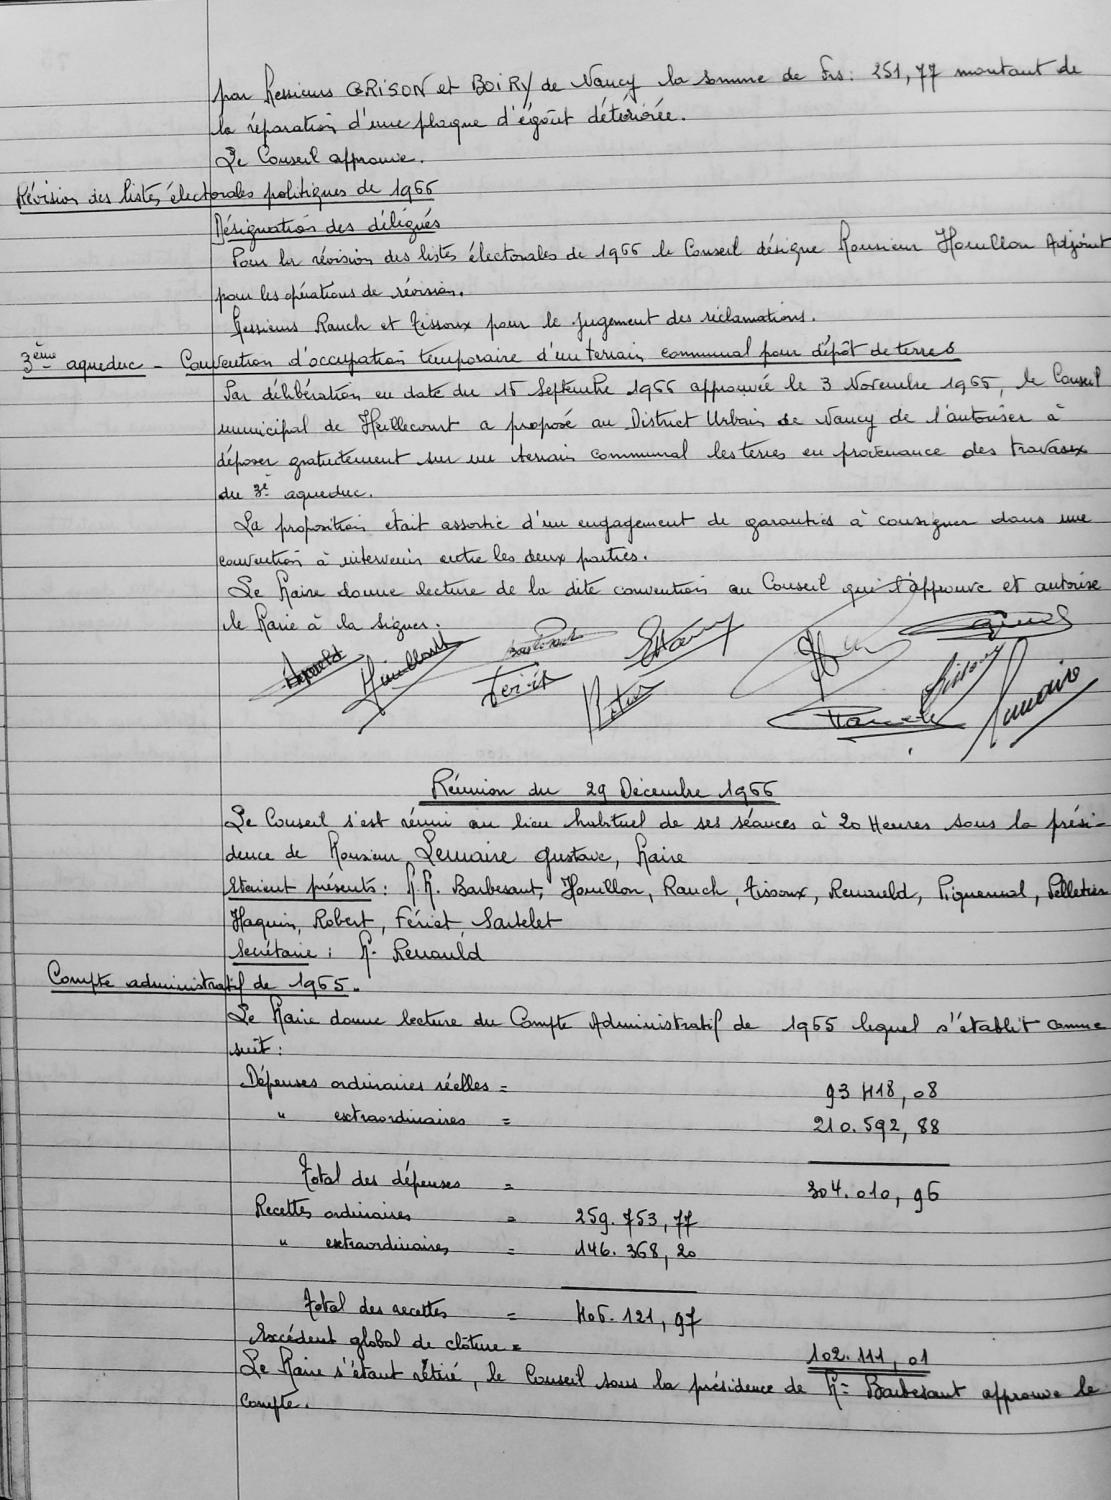 par Messieurs GRISON et BOIRY de Nancy la somme de Frs: 251,77 montant de
la réparation d'une plaque d'égoût détériorée.
Le Conseil approuve.
Révision des listes électorales politiques de 1966
Désignation des délégués
Pour la révision des listes électorales de 1966 le Conseil désigne Monsieur Houillon Adjoint
pour les opérations de révision.
Messieurs Rauch et Tissoux pour le jugement des réclamations.
3ème aqueduc - Convention d'occupation temporaire d'un terrain communal pour dépôt de terres
Par délibération en date du 15 Septembre 1966 approuvée le 3 Novembre 1966, le Conseil
municipal de Heillecourt a proposé au District Urbain de Nancy de l'autoriser à
déposer gratuitement sur un terrain communal les terres en provenance des travaux
du 3è aqueduc.
La proposition était assortie d'un engagement de garanties à consigner dans une
convention à intervenir entre les deux parties.
Le Maire donne lecture de la dite convention au Conseil qui l'approuve et autorise
le Maire à la signer.
Réunion du 29 Décembre 1966
Le Conseil s'est réuni au lieu habituel de ses séances à 20 Heures sous la prési-
dence de Monsieur Lemaire Gustave, Maire
Etaient présents: M.M. Barbesant, Houillon, Rauch, Tissoux, Renauld, Piquemal, Pelletier
Haquin, Robert, Fériet, Sartelet
Secrétaire : M. Renauld
Compte administratif de 1965.
Le Maire donne lecture du Compte Administratif de 1965 lequel s'établit comme
suit:
Dépenses ordinaires réelles = 93 418,08
" extraordinaires = 210.592,88
Total des dépenses = 304.010,96
Recettes ordinaires = 259.753,77
" extraordinaires = 146.368,20
Total des recettes = 406.121,97
Excédent global de clôture = 102.111,01
Le Maire s'étant retiré, le Conseil sous la présidence de M= Barbesant approuve le
compte.